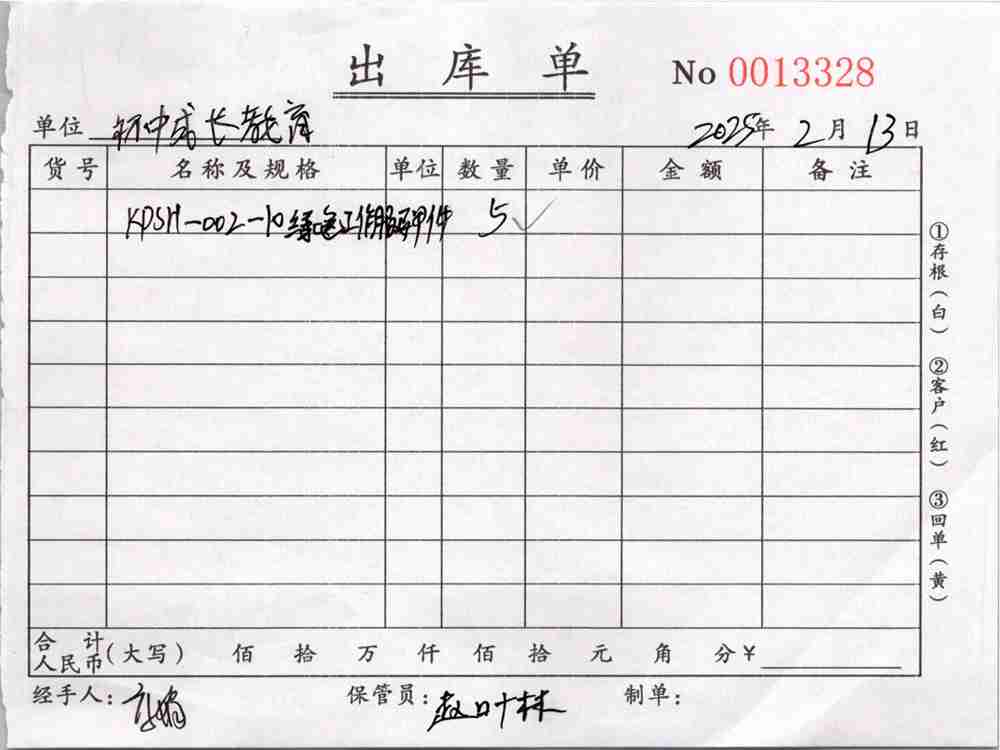 出 库 单
No 0013328
单位 成长教育
2025年 2月 13日
货号 名称及规格 单位 数量 单价 金额 备注
KDSH-002-10绿色工作服 件 5 ✓
合计 人民币(大写) 佰 拾 万 仟 佰 拾 元 角 分 ¥
经手人: 保管员:赵叶林 制单:
①存根(白) ②客户(红) ③回单(黄)